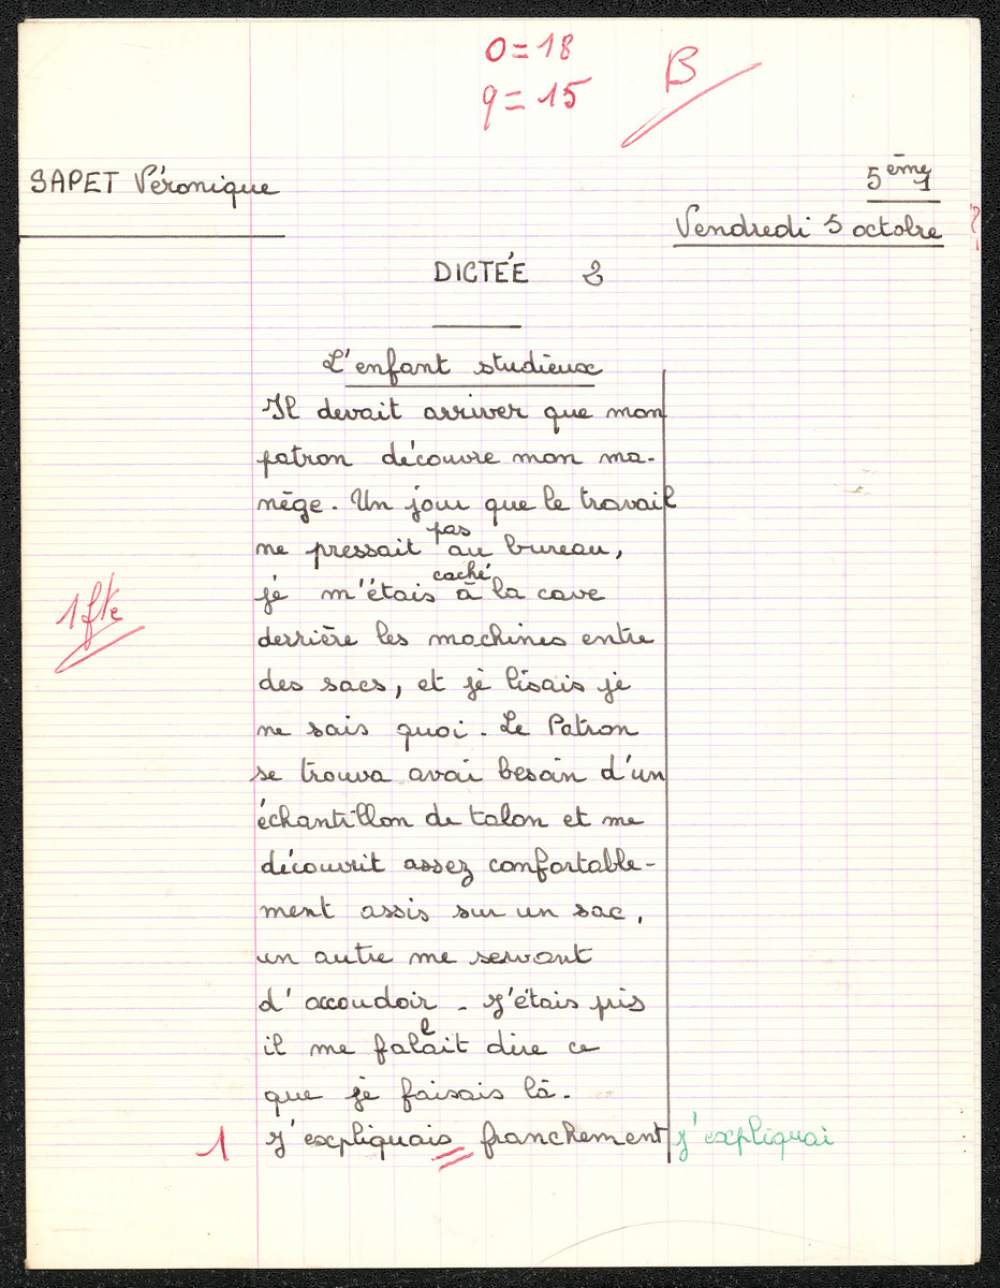 0 = 18
q = 15
B
SAPET Véronique
5ème 1
Vendredi 5 octobre
?
DICTÉE 2
L'enfant studieux
Il devait arriver que mon
patron découvre mon ma-
nège. Un jour que le travail
ne pressait pas au bureau,
je m'étais caché à la cave
1 fte
derrière les machines entre
des sacs, et je lisais je
ne sais quoi. Le Patron
se trouva avoi besoin d'un
échantillon de talon et me
découvrit assez confortable-
ment assis sur un sac,
un autre me servant
d'accoudoir - J'étais pris
il me fallait dire ce
que je faisais là.
1 J'expliquais franchement j'expliquai